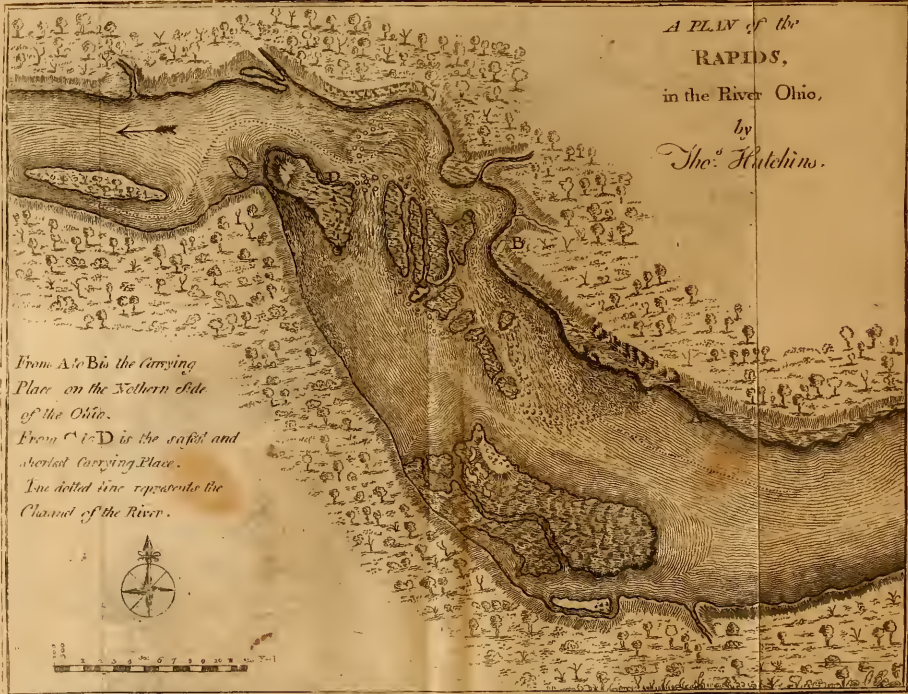 A PLAN of the
RAPIDS,
in the River Ohio,
by
Tho.s Hutchins.
D
B
From A to B is the Carrying
Place on the Nothern Side
of the Ohio.
From C to D is the safest and
shortest Carrying Place.
The dotted line represents the
Channel of the River.